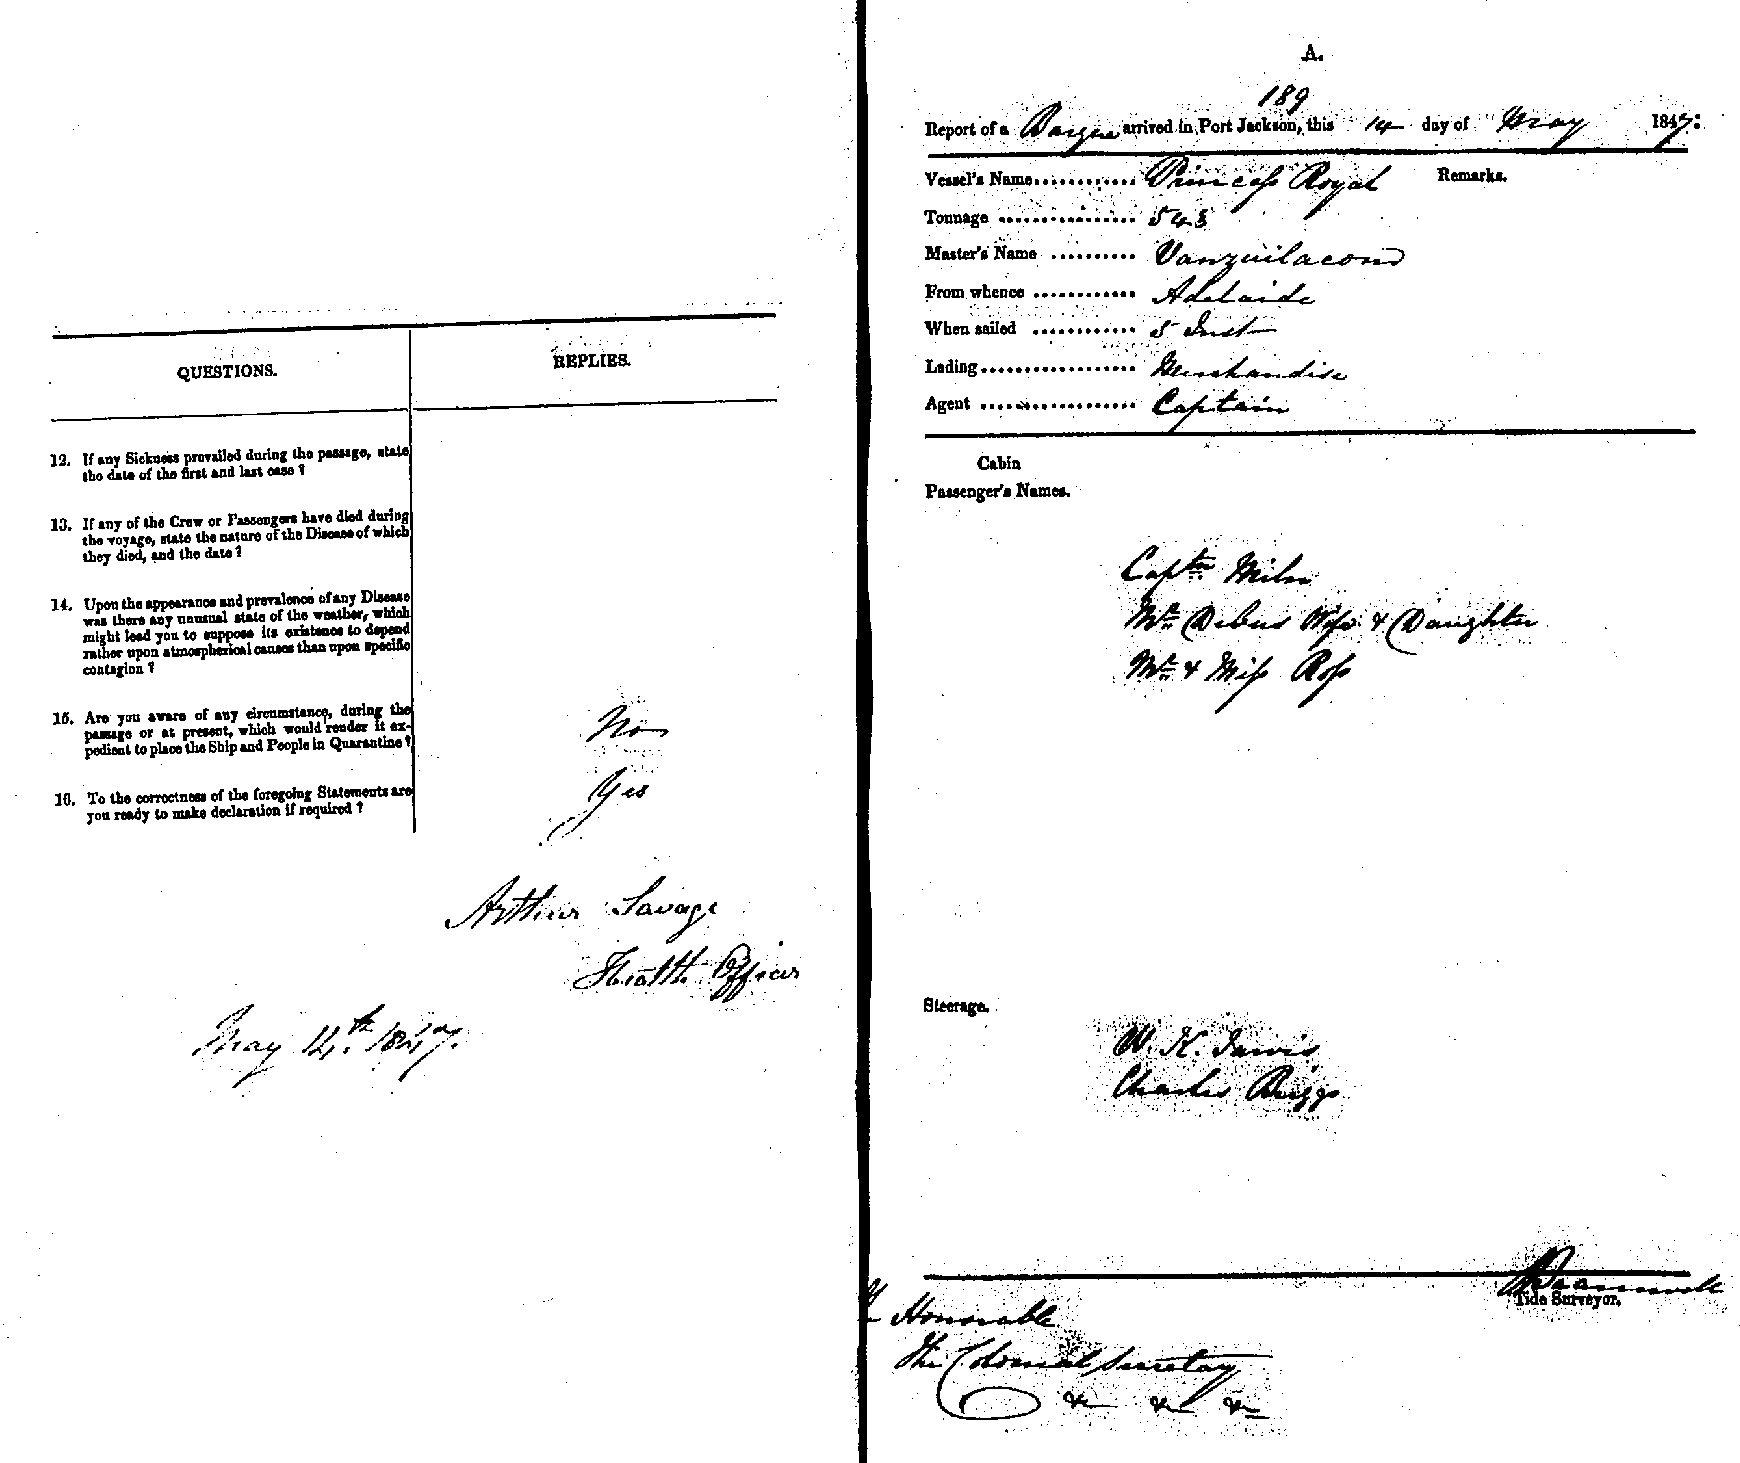 QUESTIONS.
REPLIES.
12. If any Sickness prevailed during the passage, state
the date of the first and last case ?
13. If any of the Crew or Passengers have died during
the voyage, state the nature of the Disease of which
they died, and the date ?
14. Upon the appearance and prevalence of any Disease
was there any unusual state of the weather, which
might lead you to suppose its existence to depend
rather upon atmospherical causes than upon specific
contagion ?
15. Are you aware of any circumstance, during the
passage or at present, which would render it ex-
pedient to place the Ship and People in Quarantine ?
No
16. To the correctness of the foregoing Statements are
you ready to make declaration if required ?
Yes
Arthur Savage
Health Officer
May 14th. 1847.
A.
189
Report of a Barque arrived in Port Jackson, this 14 day of May 1847:
Vessel's Name............ Princess Royal
Remarks.
Tonnage ............... 543
Master's Name ..........
From whence ............ Adelaide
When sailed ............ 5 Inst
Lading.................. Merchandise
Agent .................. Captain
Cabin
Passenger's Names.
Captn Miln
Mr. Debus Wife & Daughter
Mr. & Miss Ross
Steerage.
W. K. Jarvis
Charles Briggs
Tide Surveyor.
Honorable
The Colonial Secretary
&c &c &c